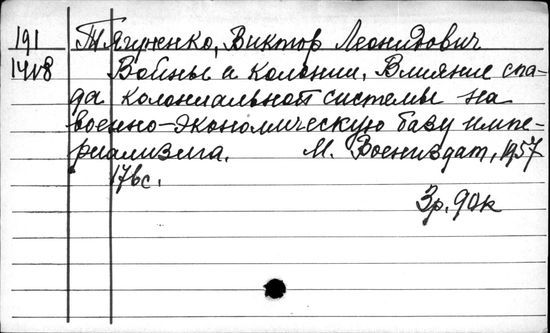 191 Тягуненко, Виктор Леонидович
1408 Войны и колонии. Влияние спа-
да колониальной системы на
военно-экономическую базу импе-
риализма. М. Воениздат, 1957
176с.
3р. 90к